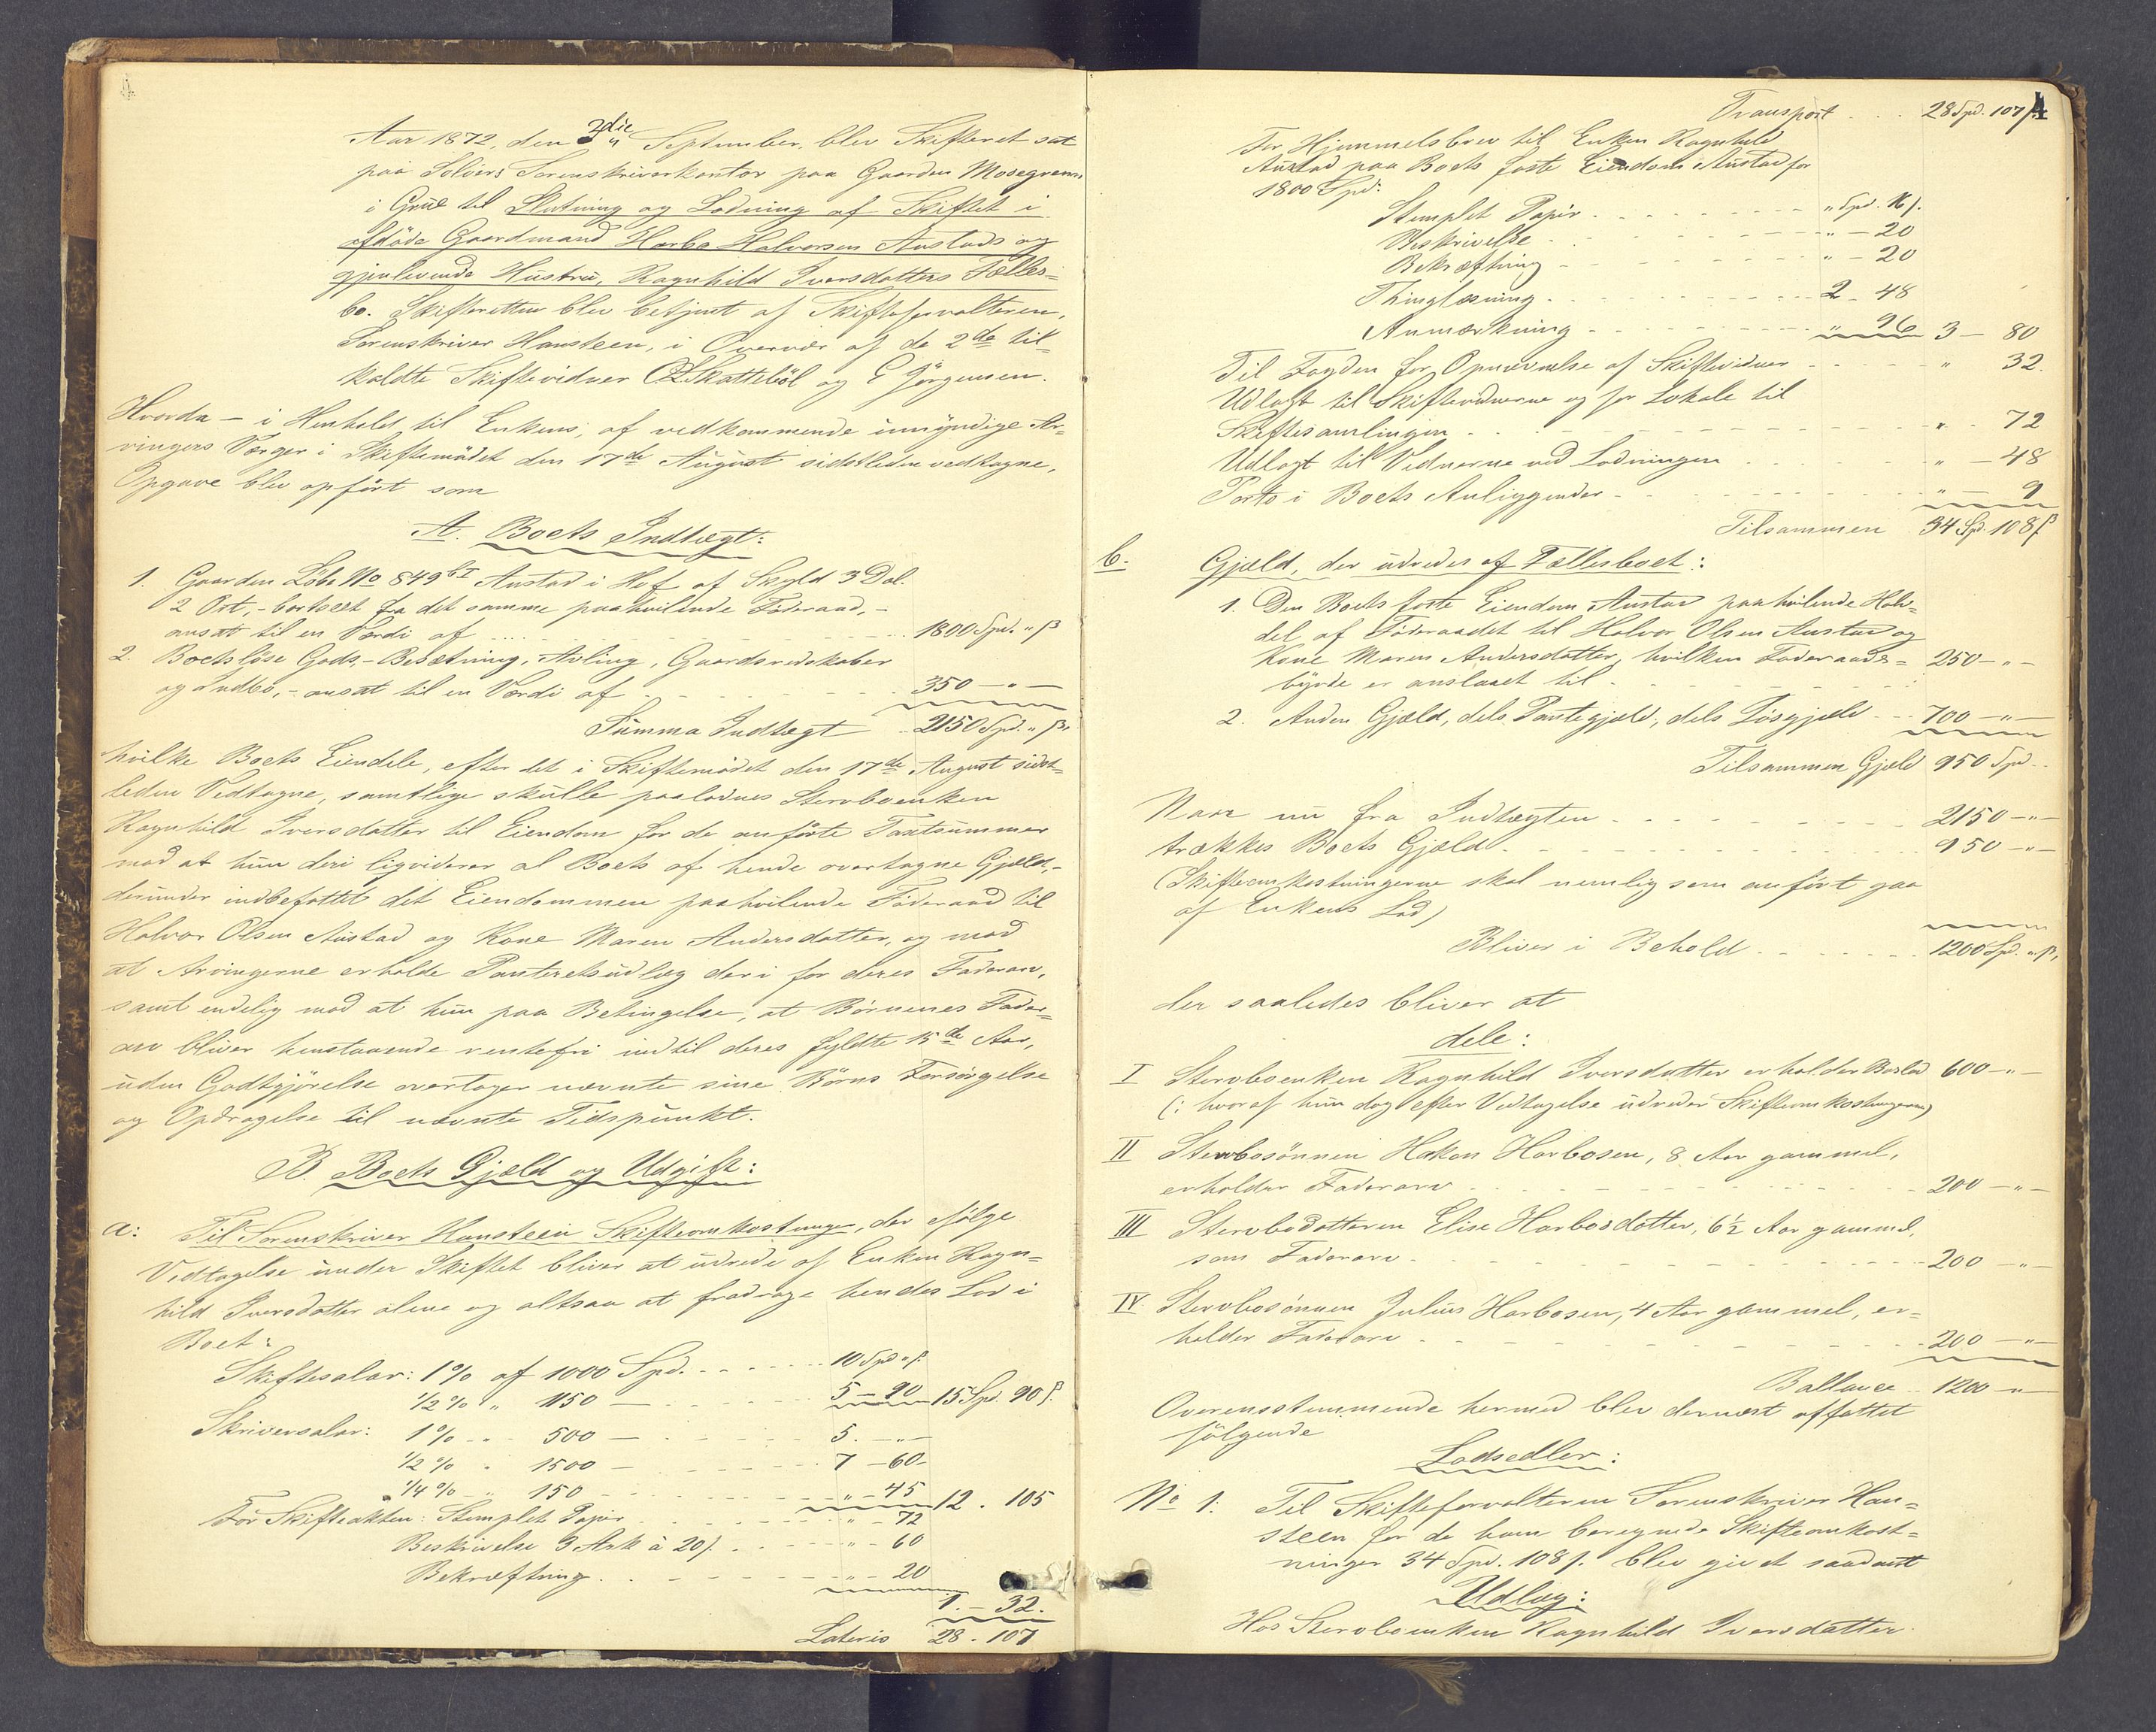 Aar 1872, den 3die September, blev Skifteret sat
paa Solørs Sorenskriverkontor paa Gaarden Mosegrenen
i Grue til Slutning og Lodning af Skiftet i
afdøde Gaardmand Harbo Halvorsen Austads og
gjenlevende Hustru, Ragnhild Iversdatters Fælles=
bo. Skifteretten blev betjent af Skifteforvalteren,
Sorenskriver Hansteen, i Overvær af de 2de til-
kaldte Skiftevidner Skattebøl og E Jørgensen.
Hvorda – i Henhold til Enkens, af vedkommende umyndige Ar-
vingers Værger i Skiftemødet den 17de August sidstleden vedtagne,
Opgave blev opført som
A. Boets Indtægt:
1. Gaarden Løbe No 849 b I Austad i Hof af Skyld 3 Dal.
2 Ort, – bortseet fra det samme paahvilende Føderaad, –
ansat til en Værdi af 1800 Spd. " ß
2. Boets løse Gods, – Besætning, Avling, Gaardsredskaber
og Indbo, – ansat til en Værdi af 350 – " –
Summa Indtægt 2150 Spd. " ß,
hvilke Boets Eiendele, efter det i Skiftemødet den 17de August sidst-
leden Vedtagne, samtlige skulle paalodnes Stervboenken
Ragnhild Iversdatter til Eiendom for de anførte Taxtsummer
mod at hun deri liqviderer al Boets af hende overtagne Gjæld, –
derunder indbefattet det Eiendommen paahvilende Føderaad til
Halvor Olsen Austad og Kone Maren Andersdatter, og mod
at Arvingerne erholde Panteretsudlæg deri for deres Fadersarv,
samt endelig mod at hun paa Betingelse, at Børnenes Fader=
arv bliver henstaaende rentefri indtil deres fyldte 15de Aar,
uden Godtgjørelse overtager nævnte sine Børns Forsørgelse
og Opdragelse til nævnte Tidspunkt.
B. Boets Gjæld og Udgift:
a: Til Sorenskriver Hansteen Skifteomkostninger, der ifølge
Vedtagelse under Skiftet bliver at udrede af Enken Ragn=
hild Iversdatter alene og altsaa at fradrage hendes Lod i
Boet:
Skiftesalar: 1% af 1000 Spd. 10 Spd " ß.
1/2% " 1150 – 5 – 90 15 Spd. 90 ß.
Skriversalar: 1% " 500 – 5. – " –
1/2% " 1500 – 7 – 60 –
1/4% – " 150 – " – 45 12. 105
For Skifteakten: Stemplet Papir " – 72
Beskrivelse 3 Ark à 20 ß. " – 60
Bekræftning " – 20
1. – 32.
Lateris 28. 107
4
Transport 28 Spd. 107 ß.
For Hjemmelsbrev til Enken Ragnhild
Austad paa Boets faste Eiendom Austad for
1800 Spd:
Stemplet Papir " Spd. 16 ß.
Beskrivelse " – 20
Bekræftning " – 20
Thinglæsning 2 – 48
Anmærkning " 96 3 – 80
Til Fogden for Opnævnelse af Skiftevidner " 32.
Udlagt til Skiftevidnerne og for Lokale til
Skiftesamlingen " 72
Udlagt til Vidnerne ved Lodningen " – 48
Porto i Boets Anliggender " – 9
Tilsammen 34 Sp. 108 ß
b. Gjæld, der udredes af Fællesboet:
1. Den Boets faste Eiendom Austad paahvilende Halv-
del af Føderaadet til Halvor Olsen Austad og
Kone Maren Andersdatter, hvilken Føderaads=
byrde er anslaaet til 250 – " –
2. Anden Gjæld, dels Pantegjæld, dels Løsgjæld 700 – " –
Tilsammen Gjæld 950 Spd.
Naar nu fra Indtægten 2150 – " –
trækkes Boets Gjæld 950 – " –
(Skifteomkostningerne skal nemlig som anført gaa
af Enkens Lod)
Bliver i Behold 1200 Sp. " ß,
der saaledes bliver at
dele:
I Stervboenken Ragnhild Iversdatter erholder Boslod 600 – " –
(: hvoraf hun dog efter Vedtagelse udreder Skifteomkostningerne)
II Stervbosønnen Hakon Harbosen, 8 Aar gammel,
erholder Fadersarv 200 – " –
III Stervbodatteren Elise Harbosdatter, 6½ Aar gammel,
som Fadersarv 200 – " –
IV. Stervbosønnen Julius Harbosen, 4 Aar gammel, er-
holder Fadersarv 200 – " –
Ballance 1200 – " –
Overensstemmende hermed blev dernæst affattet
følgende
Lodsedler:
No 1. Til Skifteforvalteren Sorenskriver Han=
steen for de ham beregnede Skifteomkost=
ninger 34 Spd. 108 ß. blev givet saadant
Udlæg:
Hos Stervboenken Ragnhild Iversdatter